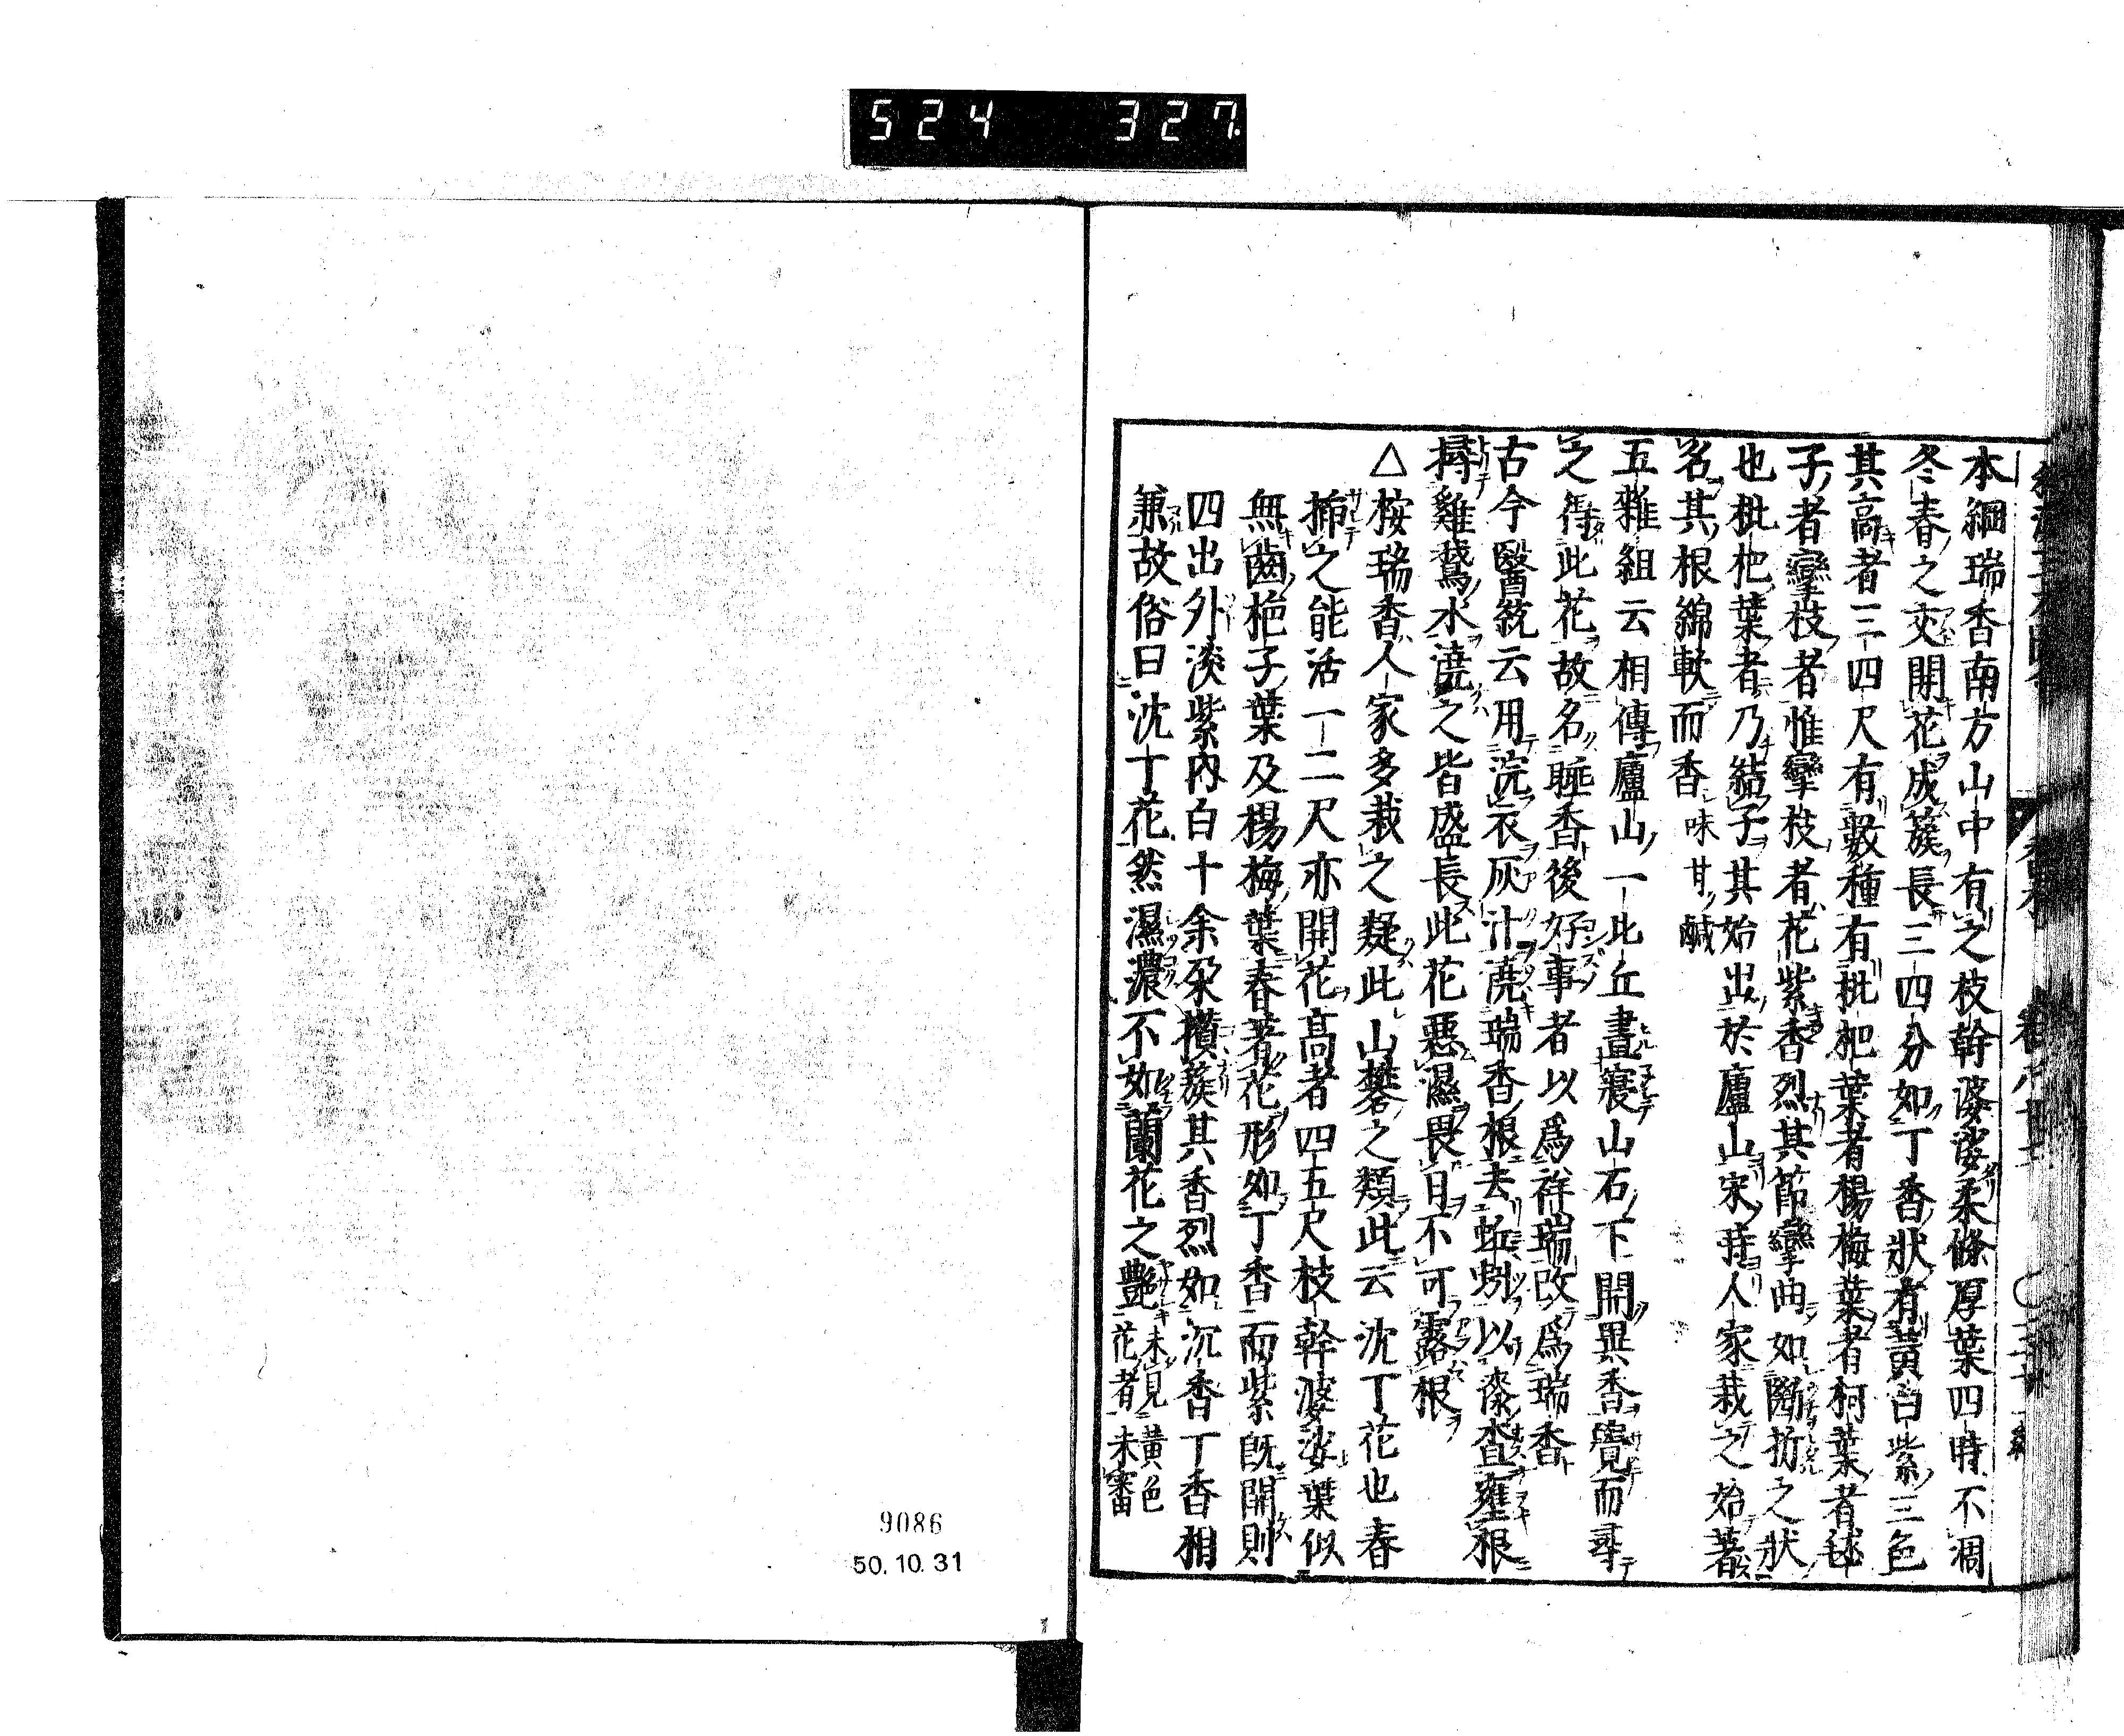 524 327
本綱瑞香南方山中有之枝幹婆娑柔條厚葉四時不凋
冬春之交開花成簇長三四分如丁香狀有黃白紫三色
其高者三四尺有數種有枇杷葉者楊梅葉者柯葉者毬
子者攣枝者惟攣枝者花紫香烈其節攣曲如斷折之狀
也枇杷葉者乃結子其始出於廬山宋時人家栽之始著
名其根綿軟而香味甘鹹
五雜組云相傳廬山一比丘晝寢山石下聞異香覺而尋
之得此花故名睡香後好事者以爲祥瑞改爲瑞香
古今醫統云用浣衣灰汁澆瑞香根去蚯蚓以漆査壅根
撏雞鵞水澆之皆盛長此花惡濕畏日不可露根
△桉瑞香人家多栽之疑此山礬之類此云沈丁花也春
揷之能活一二尺亦開花高者四五尺枝幹婆娑葉似
無齒梔子葉及楊梅葉春著花形如丁香而紫既開則
四出外淡紫內白十余朶攅簇其香烈如沉香丁香相
兼故俗曰沈丁花然濕濃不如蘭花之艷未見黃色花者未審
9086
50.10.31